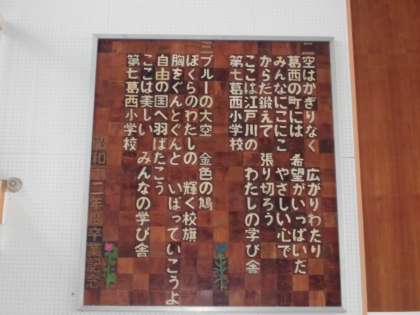 二 空はかぎりなく 広がりわたり
葛西の町には 希望がいっぱいだ
みんなにこにこ やさしい心で
からだ鍛えて 張り切ろう
ここは江戸川の わたしの学び舎
第七葛西小学校
三 ブルーの大空 金色の鳩
ぼくらのわたしの 輝く校旗
胸をぐんとぐんと いばっていこうよ
自由の国へ羽ばたこう
ここは美しい みんなの学び舎
第七葛西小学校
昭和五二年度卒業記念